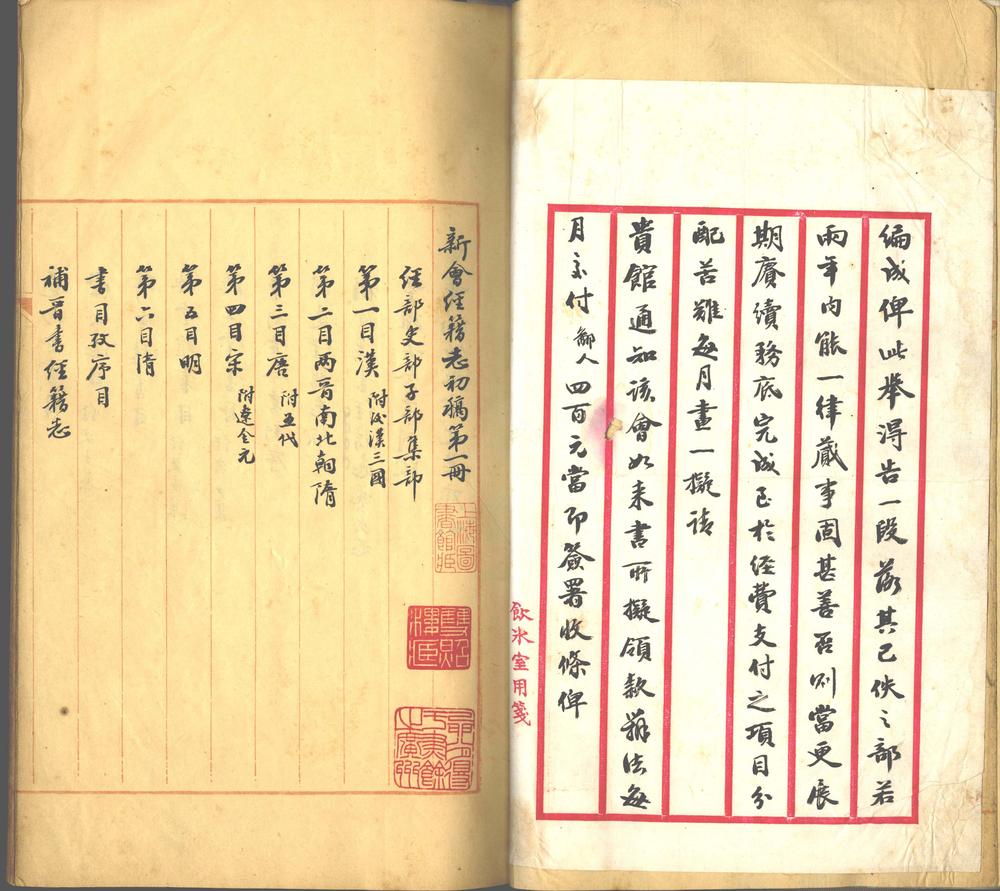 編成俾此舉得告一段落其已佚之部若
兩年內能一律蕆事固甚善否則當更展
期賡續務底完成至於經費支付之項目分
配苦難每月畫一擬請
貴館通知該會如來書所擬領款辦法每
月交付鄙人四百元當即簽署收條俾
飲冰室用箋
新會經籍志初稿第一冊
經部史部子部集部
第一目漢附後漢三國
第二目兩晉南北朝隋
第三目唐附五代
第四目宋附遼金元
第五目明
第六目隋
書目攷序目
補晉書經籍志
上海圖書館藏